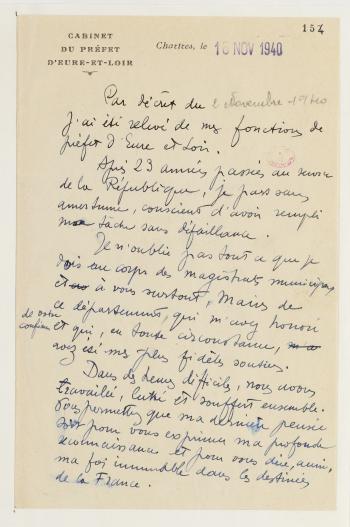 154
CABINET
DU PRÉFET
D'EURE-ET-LOIR
Chartres, le 16 NOV 1940
Par décret du 2 Novembre 1940
J'ai été relevé de mes fonctions de
préfet d'Eure et Loir.
Après 23 années passées au service
de la République, je pars sans
amertume, conscient d'avoir rempli
ma tâche sans défaillance.
Je n'oublie pas tout ce que je
dois au corps des magistrats municipaux
et à vous surtout, Maires de
ce département, qui m'avez honoré
de votre
confiance
et qui, en toute circonstance,
avez été mes plus fidèles soutiens.
Dans des heures difficiles, nous avons
travaillé, lutté et souffert ensemble.
Vous permettez que ma dernière pensée
soit pour vous exprimer ma profonde
reconnaissance et pour vous dire, aussi,
ma foi immuable dans les destinées
de la France.